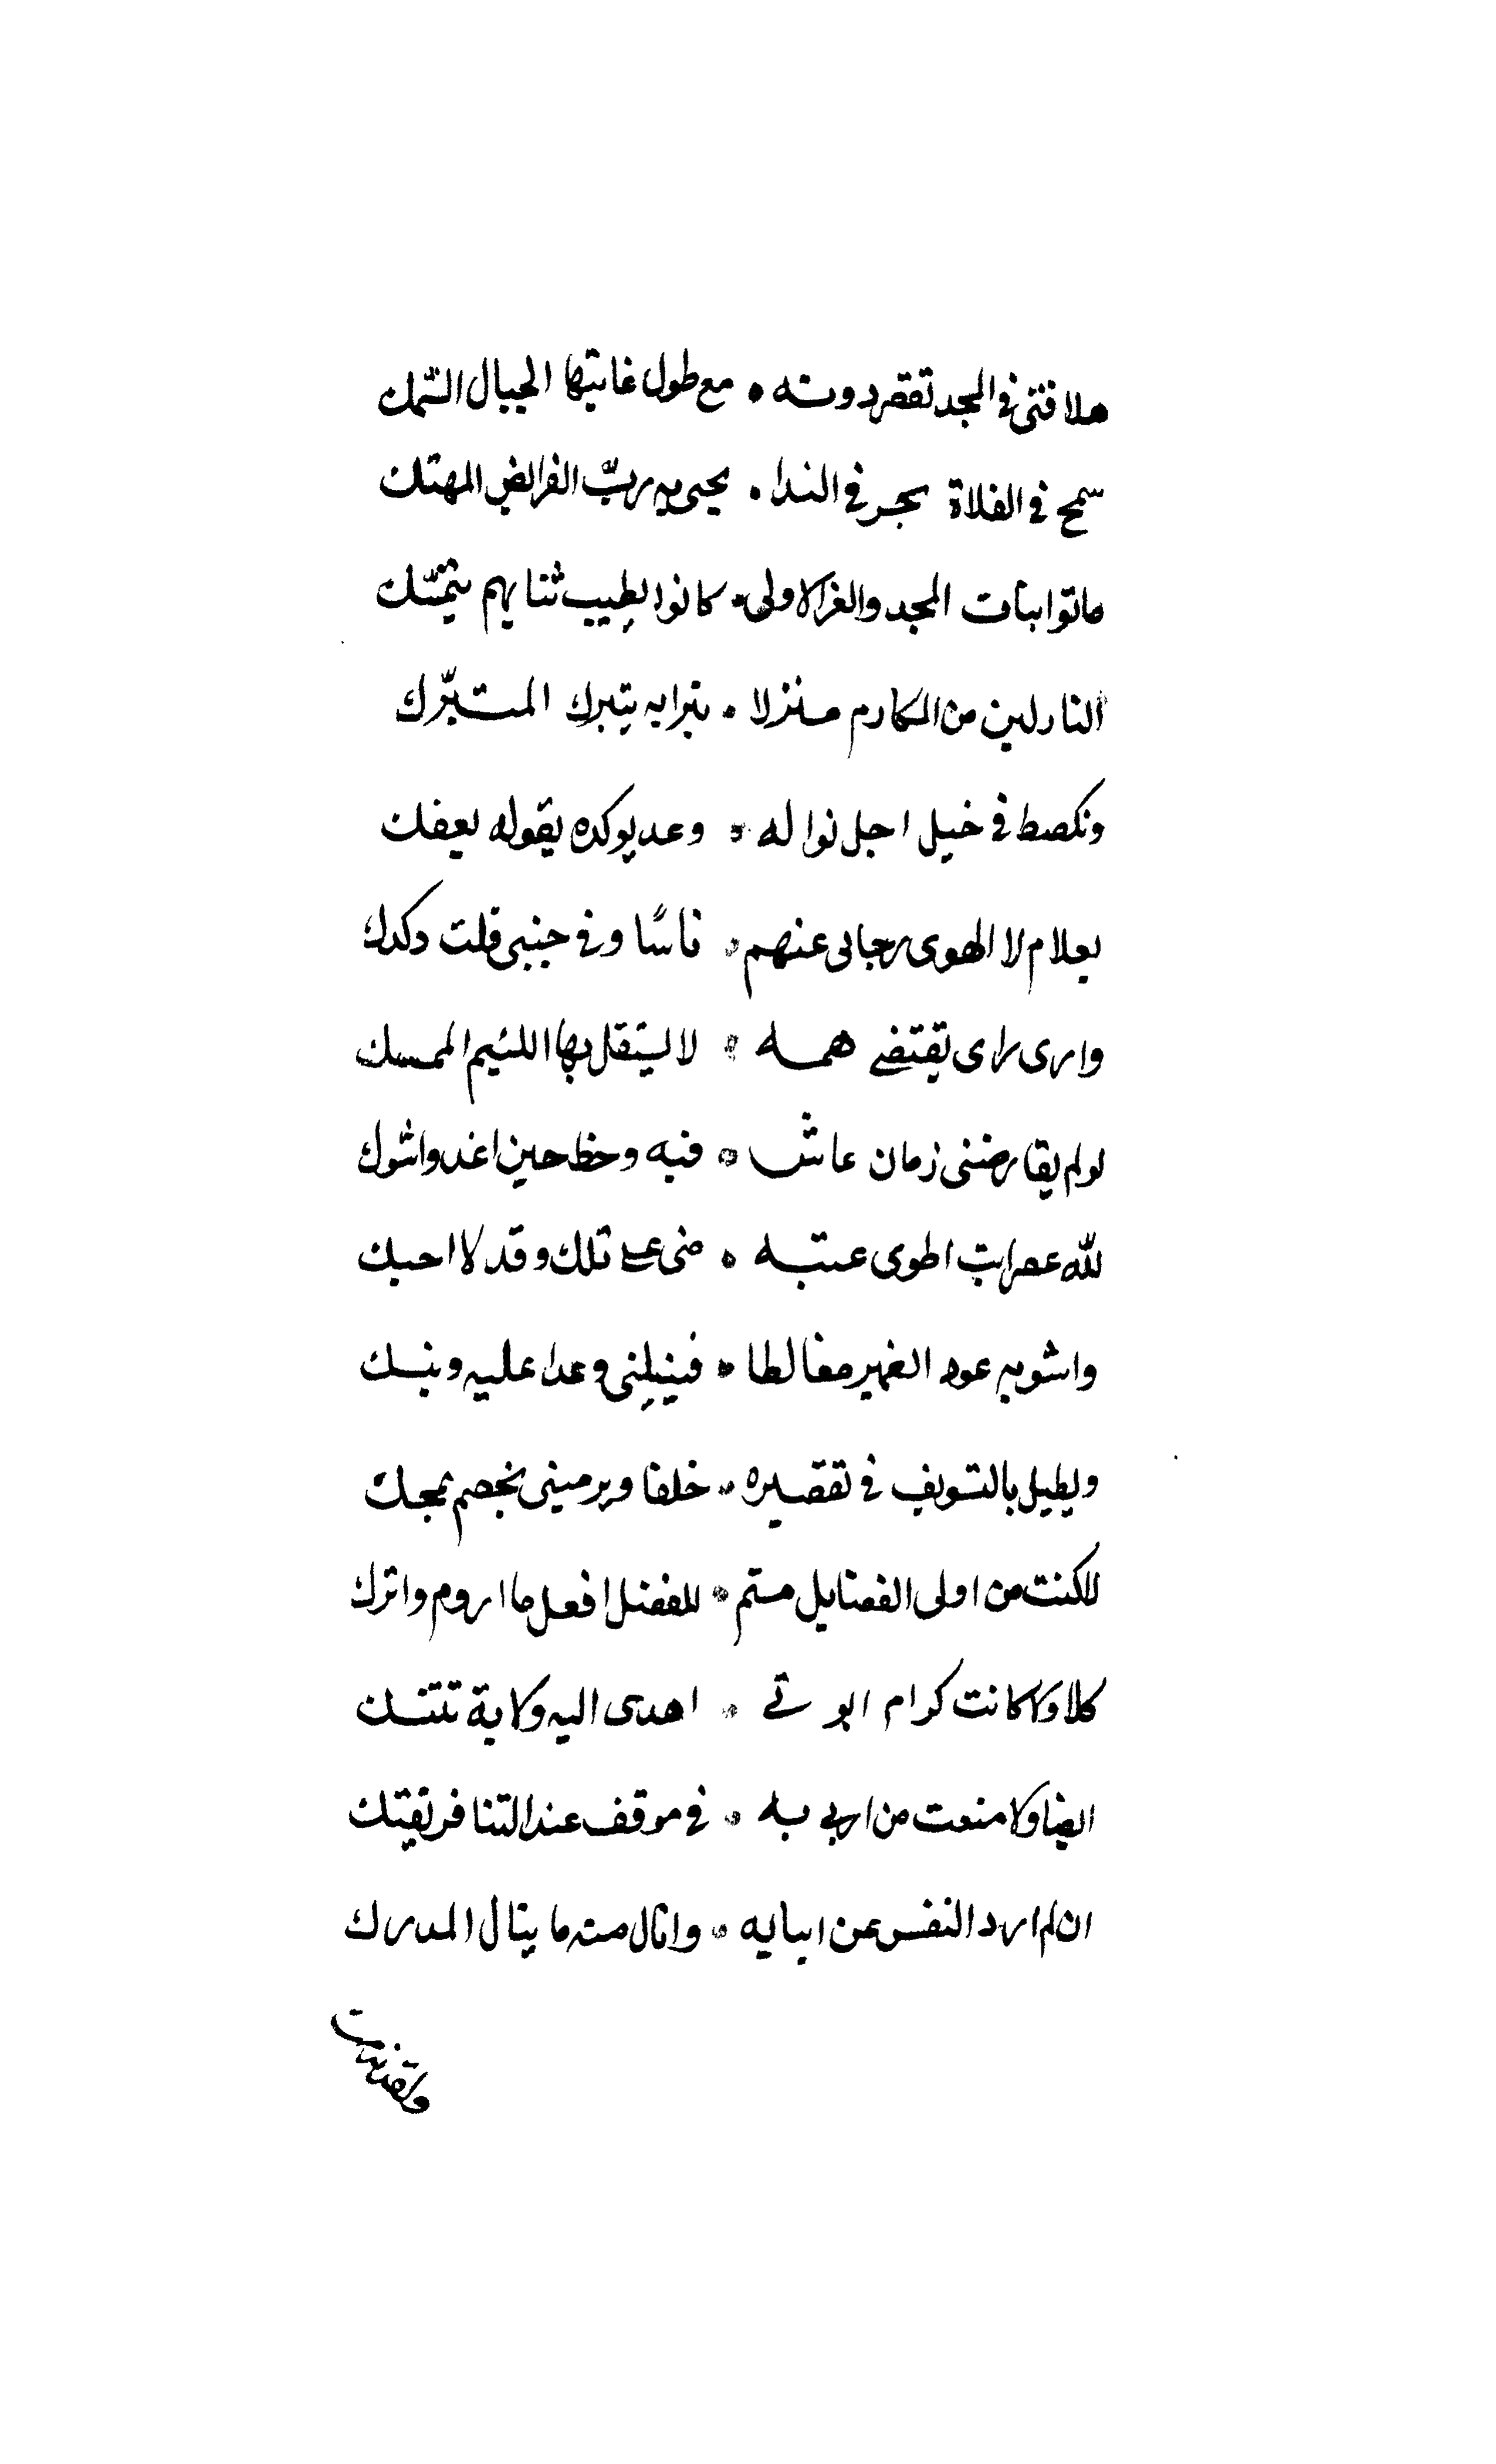 هلا فتى في المجد تقصر دونه • مع طول غايتها الجبال السّمك
سمح في الفلاة بحر في الندا • يحيى به ربّ الفرائض المهتك
ماتوا بنات المجد والغر الاولى • كانوا بطيب ثنايهم يتمسّك
النازلين من المكارم منزلا • بترابه يتبرك المتبرّك
في خيل اجل نواله • وعد يوكده بقوله يعفك
لا الهوى رجالى عنهم • ناسًا وفي جنبى قلت دكدك
وارى راى تقتضي همه • لا يستقل بها اللئيم الممسك
لو لم يقارضنى زمان عاش • فيه وحظ حين اغدو اشوك
لله عصرا بت اطوى عتبه • منى على تلك وقد لا احبك
واشوبه عود الفهير مغالطا • فينيلنى وعدا عليه وبنسك
ويطيل بالتسويف في تقصيره • خلفا ويرمينى بخصم يمحك
للكنت من اولى الفضايل مستم • للفضل افعل ما اروم واترك
كلا ولا كانت كرام ابوتي • اهدى اليه ولاية تتنسك
ايضا ولا منعت من اربي به • في موقف عند التنافر يفتك
ان لم ارد النفس عن ابيايه • وانال منه ما ينال المدرك